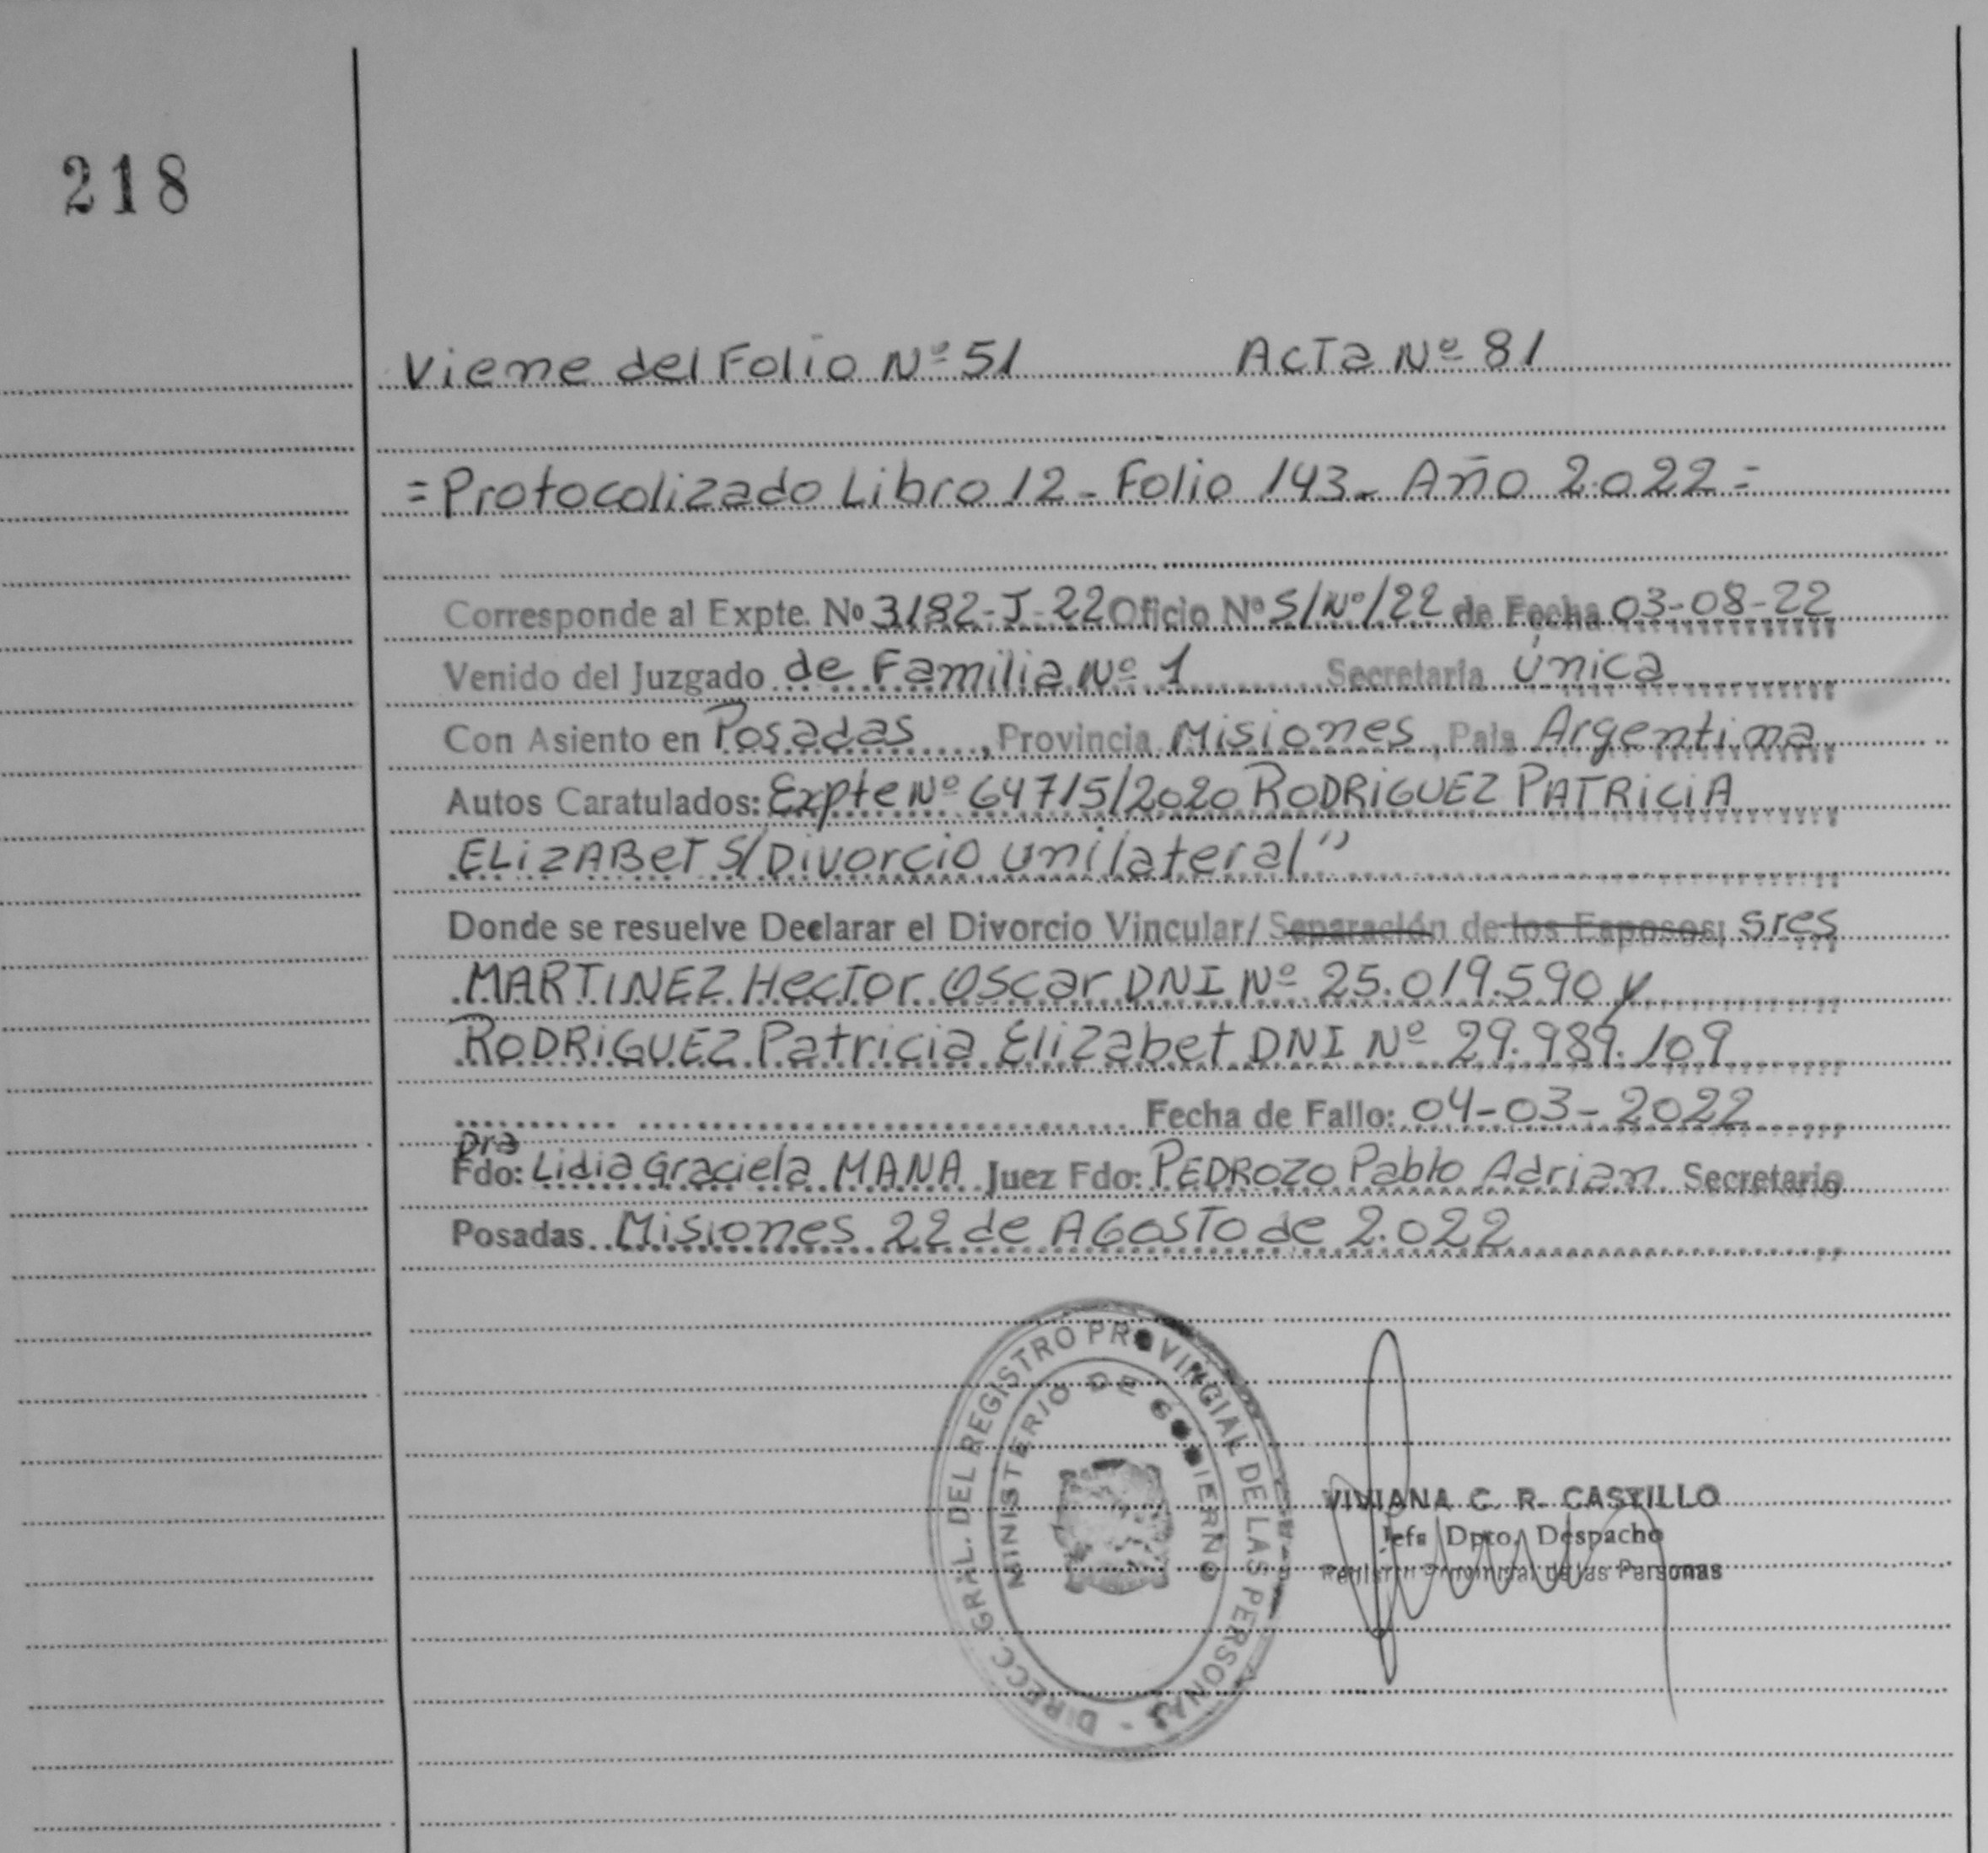 218
Viene del Folio Nº 51 Acta Nº 81
=Protocolizado Libro 12 - Folio 143 - Año 2.022=
Corresponde al Expte. Nº 3182-J-22 Oficio Nº S/Nº/22 de Fecha 03-08-22
Venido del Juzgado de Familia Nº 1 Secretaría Única
Con Asiento en Posadas, Provincia Misiones, País Argentina
Autos Caratulados: Expte Nº 64715/2020 RODRIGUEZ PATRICIA
ELIZABET S/Divorcio unilateral"
Donde se resuelve Declarar el Divorcio Vincular/ Separación de los Esposos; sres
MARTINEZ Hector Oscar DNI Nº 25.019.590 y
RODRIGUEZ Patricia Elizabet DNI Nº 29.989.109
Fecha de Fallo: 04-03-2022
Dra
Fdo: Lidia Graciela MANA Juez Fdo: PEDROZO Pablo Adrian Secretario
Posadas Misiones 22 de AGOSTO de 2.022
DIRECC. GRAL. DEL REGISTRO PROVINCIAL DE LAS PERSONAS -
MINISTERIO DE GOBIERNO
VIVIANA C. R. CASTILLO
Jefe Dpto. Despacho
Registro Provincial de las Personas